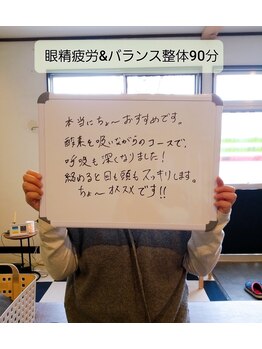 眼精疲労&バランス整体90分
本当にちょ〜おすすめです。
酵素を吸いながらのコースで、
呼吸も深くなりました！
終めると目も頭もスッキリします。
ちょ〜オススメです!!